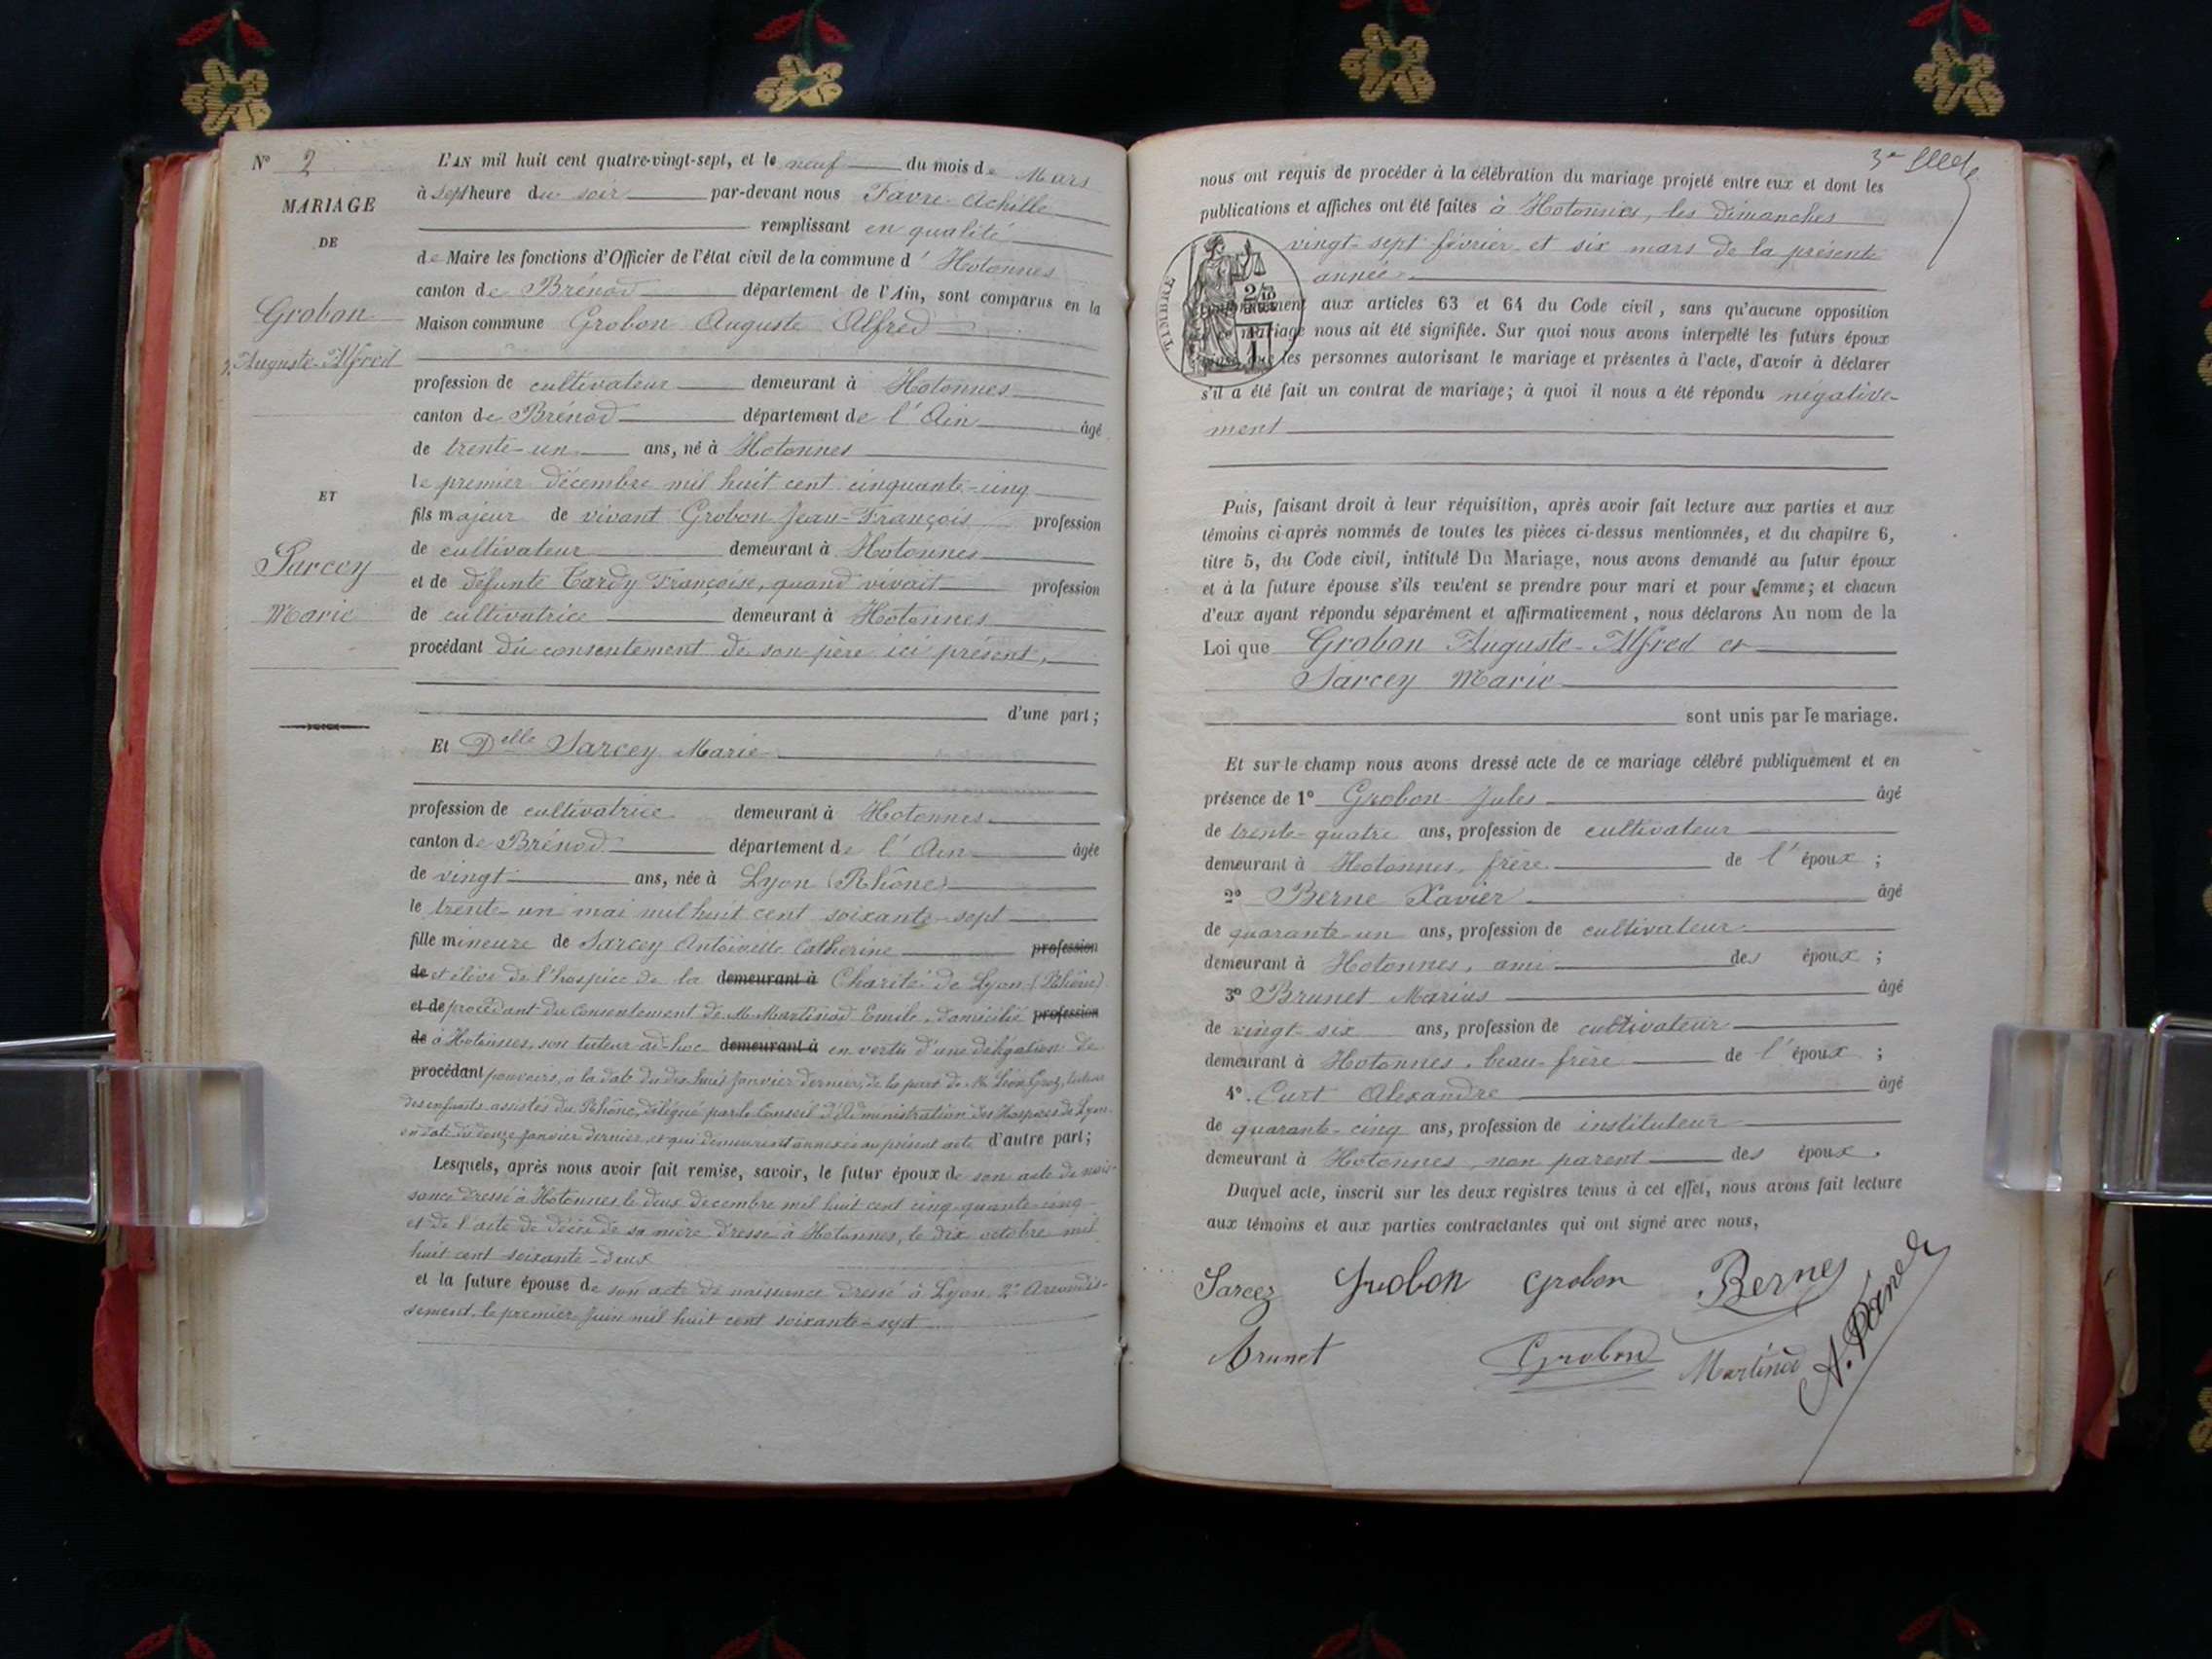 N° 2
MARIAGE
DE
Grobon
Auguste-Alfred
ET
Sarcey
Marie
L'AN mil huit cent quatre-vingt-sept, et le neuf du mois de Mars
à sept heure du soir par-devant nous Favre Achille
remplissant en qualité
de Maire les fonctions d'Officier de l'état civil de la commune d' Hotonnes
canton de Brénod département de l'Ain, sont comparus en la
Maison commune Grobon Auguste Alfred
profession de cultivateur demeurant à Hotonnes
canton de Brénod département de l'Ain âgé
de trente-un ans, né à Hotonnes
le premier décembre mil huit cent cinquante-cinq
fils majeur de vivant Grobon Jean-François profession
de cultivateur demeurant à Hotonnes
et de défunte Tardy Françoise, quand vivait profession
de cultivatrice demeurant à Hotonnes
procédant du consentement de son père ici présent,
d'une part;
Et Delle Sarcey Marie
profession de cultivatrice demeurant à Hotonnes
canton de Brénod département de l'Ain âgée
de vingt ans, née à Lyon (Rhône)
le trente-un mai mil huit cent soixante-sept
fille mineure de Sarcey Antoinette Catherine profession
de et élève de l'hospice de la demeurant à Charité de Lyon (Rhône)
et de procédant du consentement de M. Martinod Emile, domicilié profession
de à Hotonnes, son tuteur ad-hoc demeurant à en vertu d'une délégation de
procédant pouvoirs, à la date du dix huit Janvier dernier, de la part de M. Léon Groz, tuteur
des enfants assistés du Rhône, délégué par le Conseil d'Administration des Hospices de Lyon
en date du douze Janvier dernier, et qui demeureront annexés au présent acte d'autre part;
Lesquels, après nous avoir fait remise, savoir, le futur époux de son acte de nais-
sance dressé à Hotonnes le deux décembre mil huit cent cinq-quante-cinq
et de l'acte de décès de sa mère dressé à Hotonnes, le dix octobre mil
huit cent soixante-deux
et la future épouse de son acte de naissance dressé à Lyon 2e Arrondis-
sement, le premier Juin mil huit cent soixante-sept
nous ont requis de procéder à la célébration du mariage projeté entre eux et dont les
publications et affiches ont été faites à Hotonnes, les dimanches
vingt-sept février et six mars de la présente
année.
TIMBRE
conformément aux articles 63 et 64 du Code civil, sans qu'aucune opposition
mariage nous ait été signifiée. Sur quoi nous avons interpellé les futurs époux
les personnes autorisant le mariage et présentes à l'acte, d'avoir à déclarer
s'il a été fait un contrat de mariage; à quoi il nous a été répondu négative-
ment
Puis, faisant droit à leur réquisition, après avoir fait lecture aux parties et aux
témoins ci-après nommés de toutes les pièces ci-dessus mentionnées, et du chapitre 6,
titre 5, du Code civil, intitulé Du Mariage, nous avons demandé au futur époux
et à la future épouse s'ils veulent se prendre pour mari et pour femme; et chacun
d'eux ayant répondu séparément et affirmativement, nous déclarons Au nom de la
Loi que Grobon Auguste-Alfred et
Sarcey Marie
sont unis par le mariage.
Et sur le champ nous avons dressé acte de ce mariage célébré publiquement et en
présence de 1° Grobon Jules âgé
de trente-quatre ans, profession de cultivateur
demeurant à Hotonnes, frère de l'époux;
2° Berne Xavier âgé
de quarante-un ans, profession de cultivateur
demeurant à Hotonnes, ami des époux;
3° Brunet Marius âgé
de vingt-six ans, profession de cultivateur
demeurant à Hotonnes, beau-frère de l'époux;
4° Curt Alexandre âgé
de quarante-cinq ans, profession de instituteur
demeurant à Hotonnes, non parent des époux.
Duquel acte, inscrit sur les deux registres tenus à cet effet, nous avons fait lecture
aux témoins et aux parties contractantes qui ont signé avec nous,
Sarcey Grobon Grobon Berne
Brunet Grobon Martinod